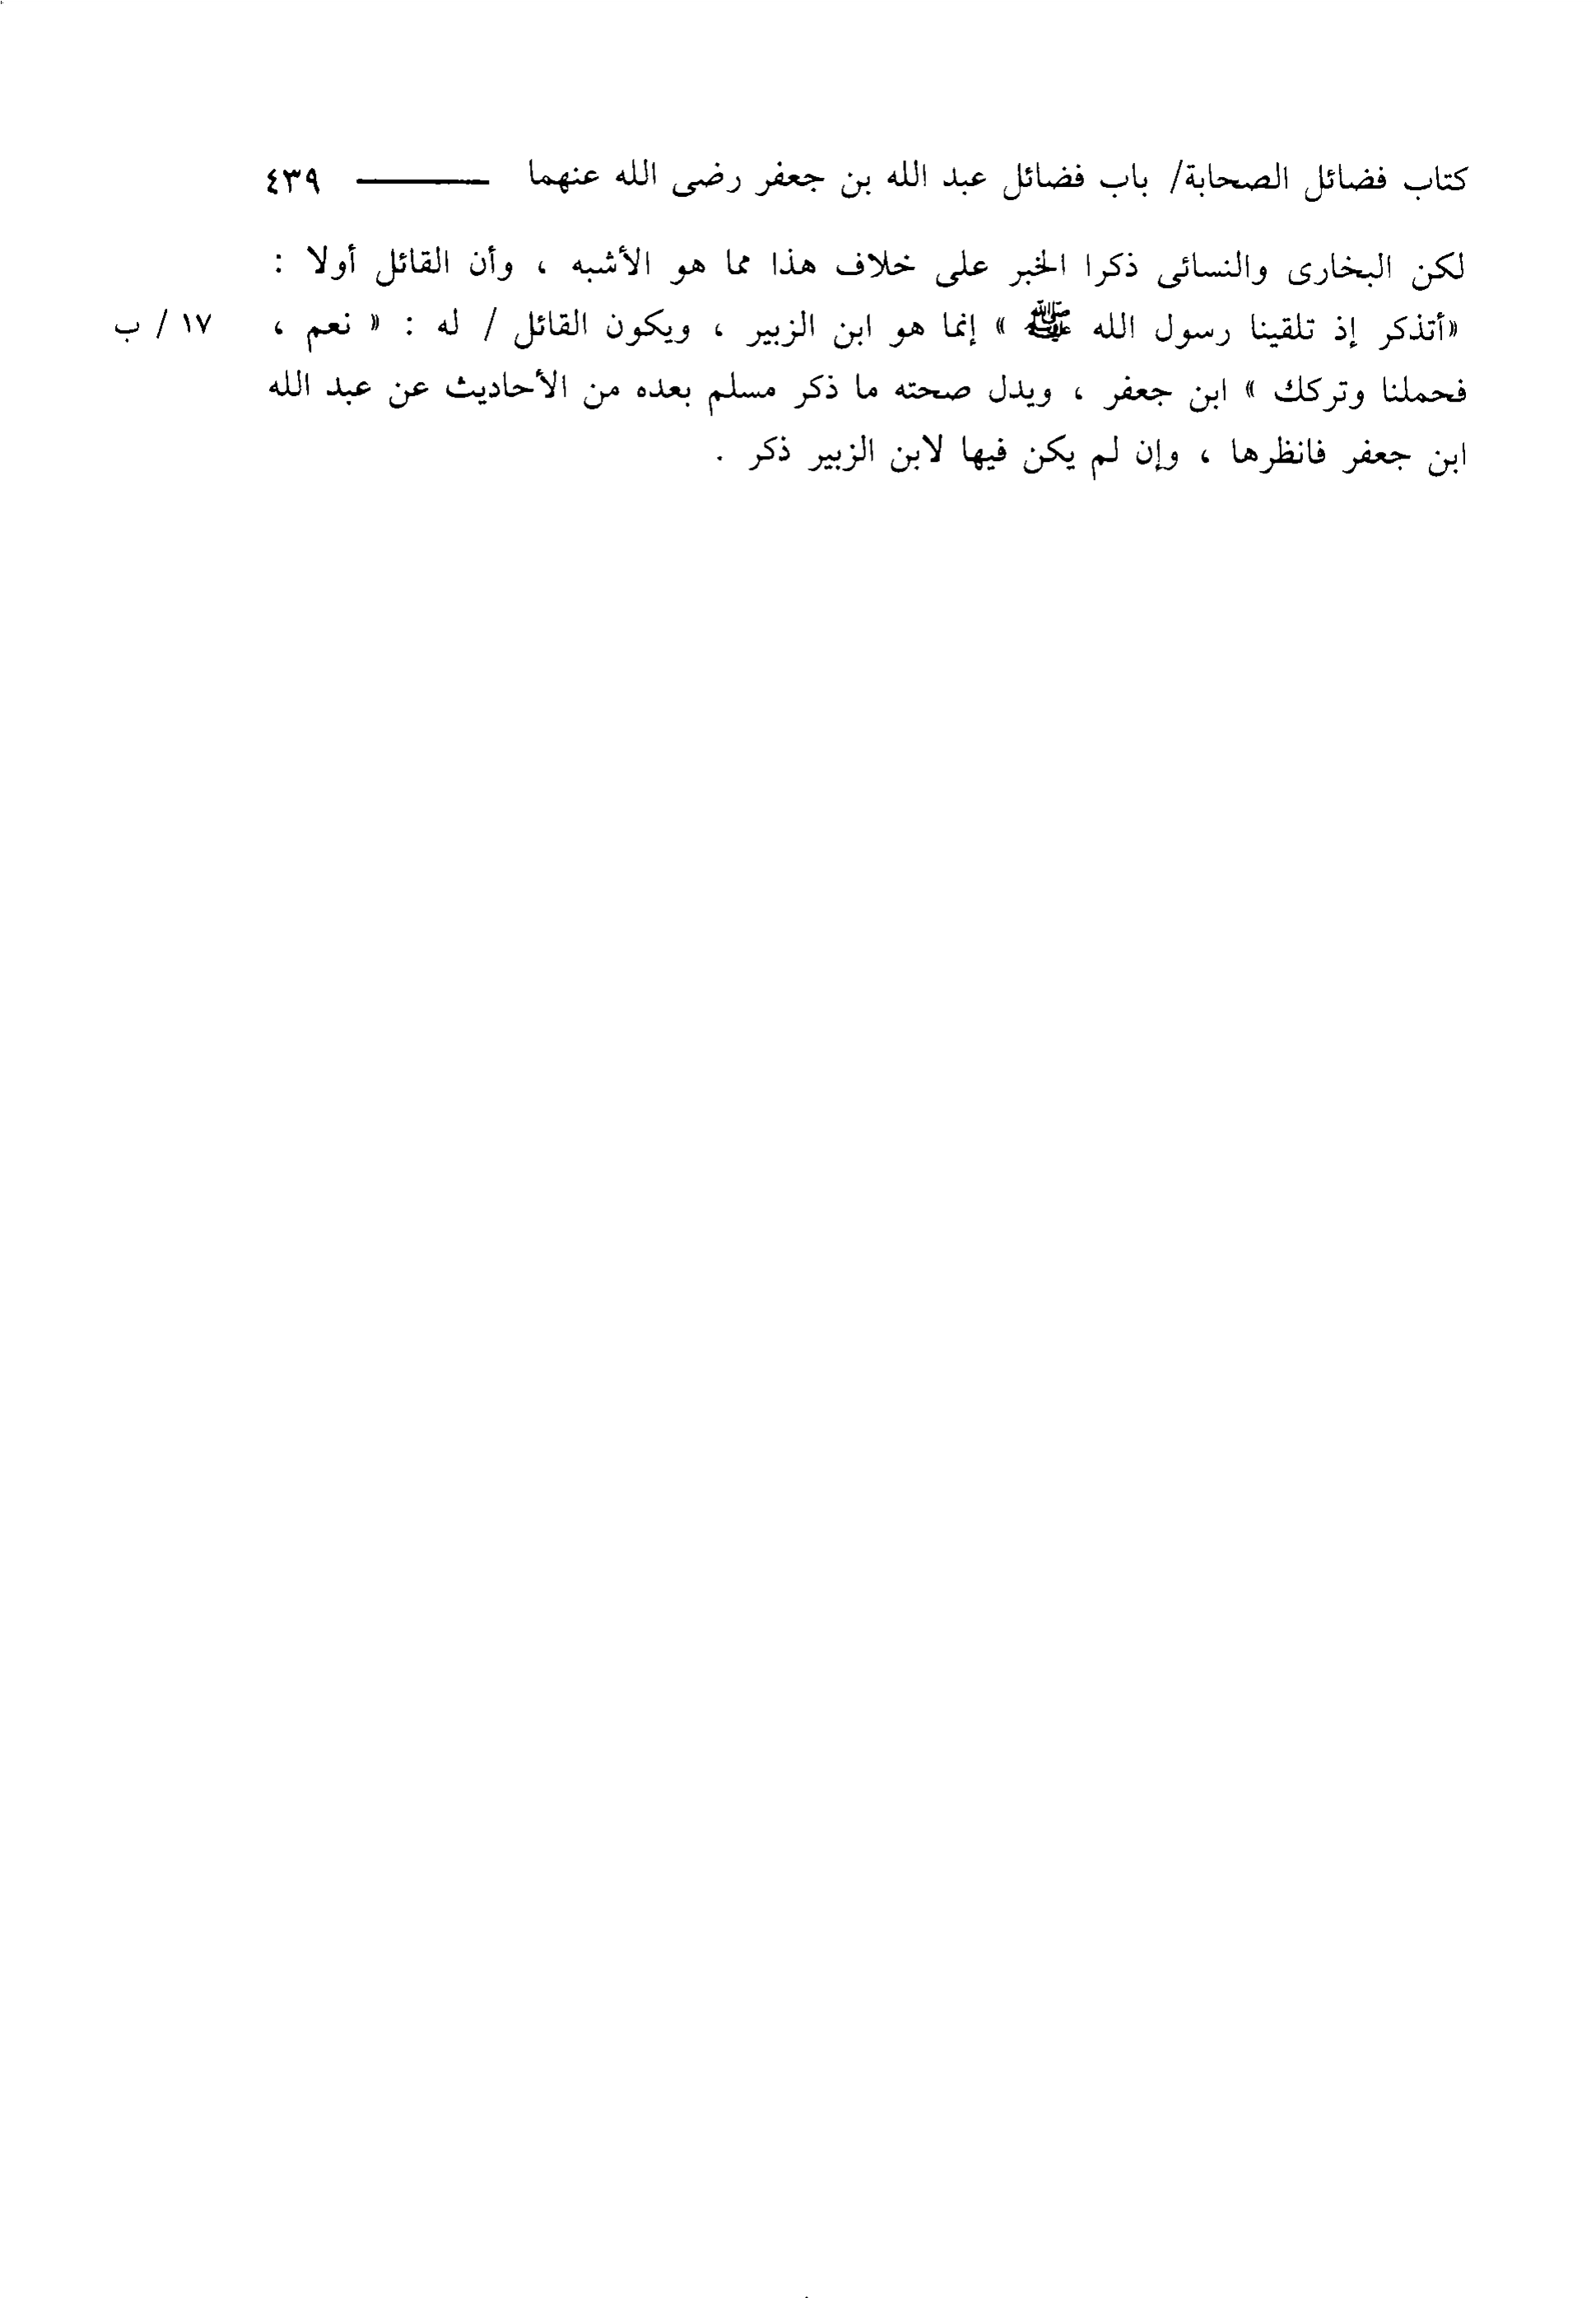 كتاب فضائل الصحابة/ باب فضائل عبد الله بن جعفر رضى الله عنهما ـــــــ ٤٣٩
لكن البخارى والنسائى ذكرا الخبر على خلاف هذا مما هو الأشبه ، وأن القائل أولا :
«أتذكر إذ تلقينا رسول الله ﷺ » إنما هو ابن الزبير ، ويكون القائل / له : « نعم ، ١٧ / ب
فحملنا وتركك » ابن جعفر ، ويدل صحته ما ذكر مسلم بعده من الأحاديث عن عبد الله
ابن جعفر فانظرها ، وإن لم يكن فيها لابن الزبير ذكر .